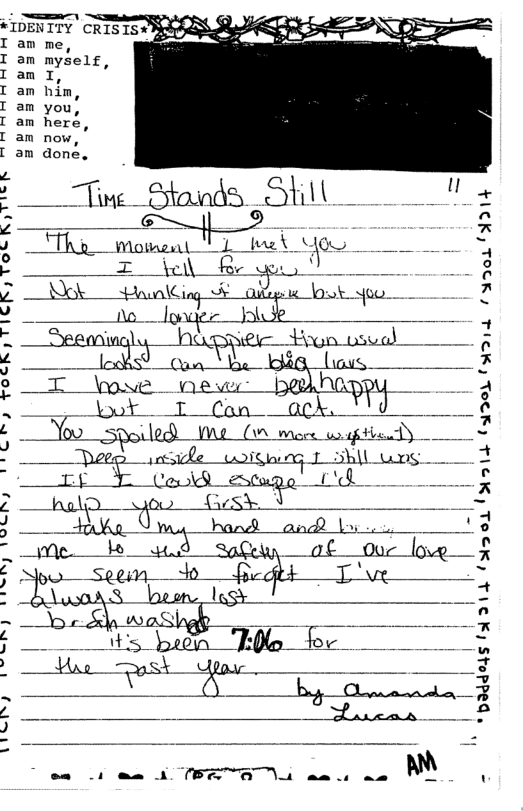 *IDENITY CRISIS*
I am me,
I am myself,
I am I,
I am him,
I am you,
I am here,
I am now,
I am done.
TIME Stands Still
11
The moment I met you
I fell for you
Not thinking of anyone but you
no longer blue
Seemingly happier than usual
looks can be big liars
I have never been happy
but I can act.
You spoiled me (in more ways than 1)
Deep inside wishing I still was
If I could escape I'd
help you first.
take my hand and
me to the safety of our love
You seem to forget I've
always been lost
brainwashed
it's been 7:06 for
the past year.
by Amanda
Lucas
AM
tick, tock, tick, tock, tick, tock, tick, stopped.
tick, tock, tick, tock, tick, tock, tick